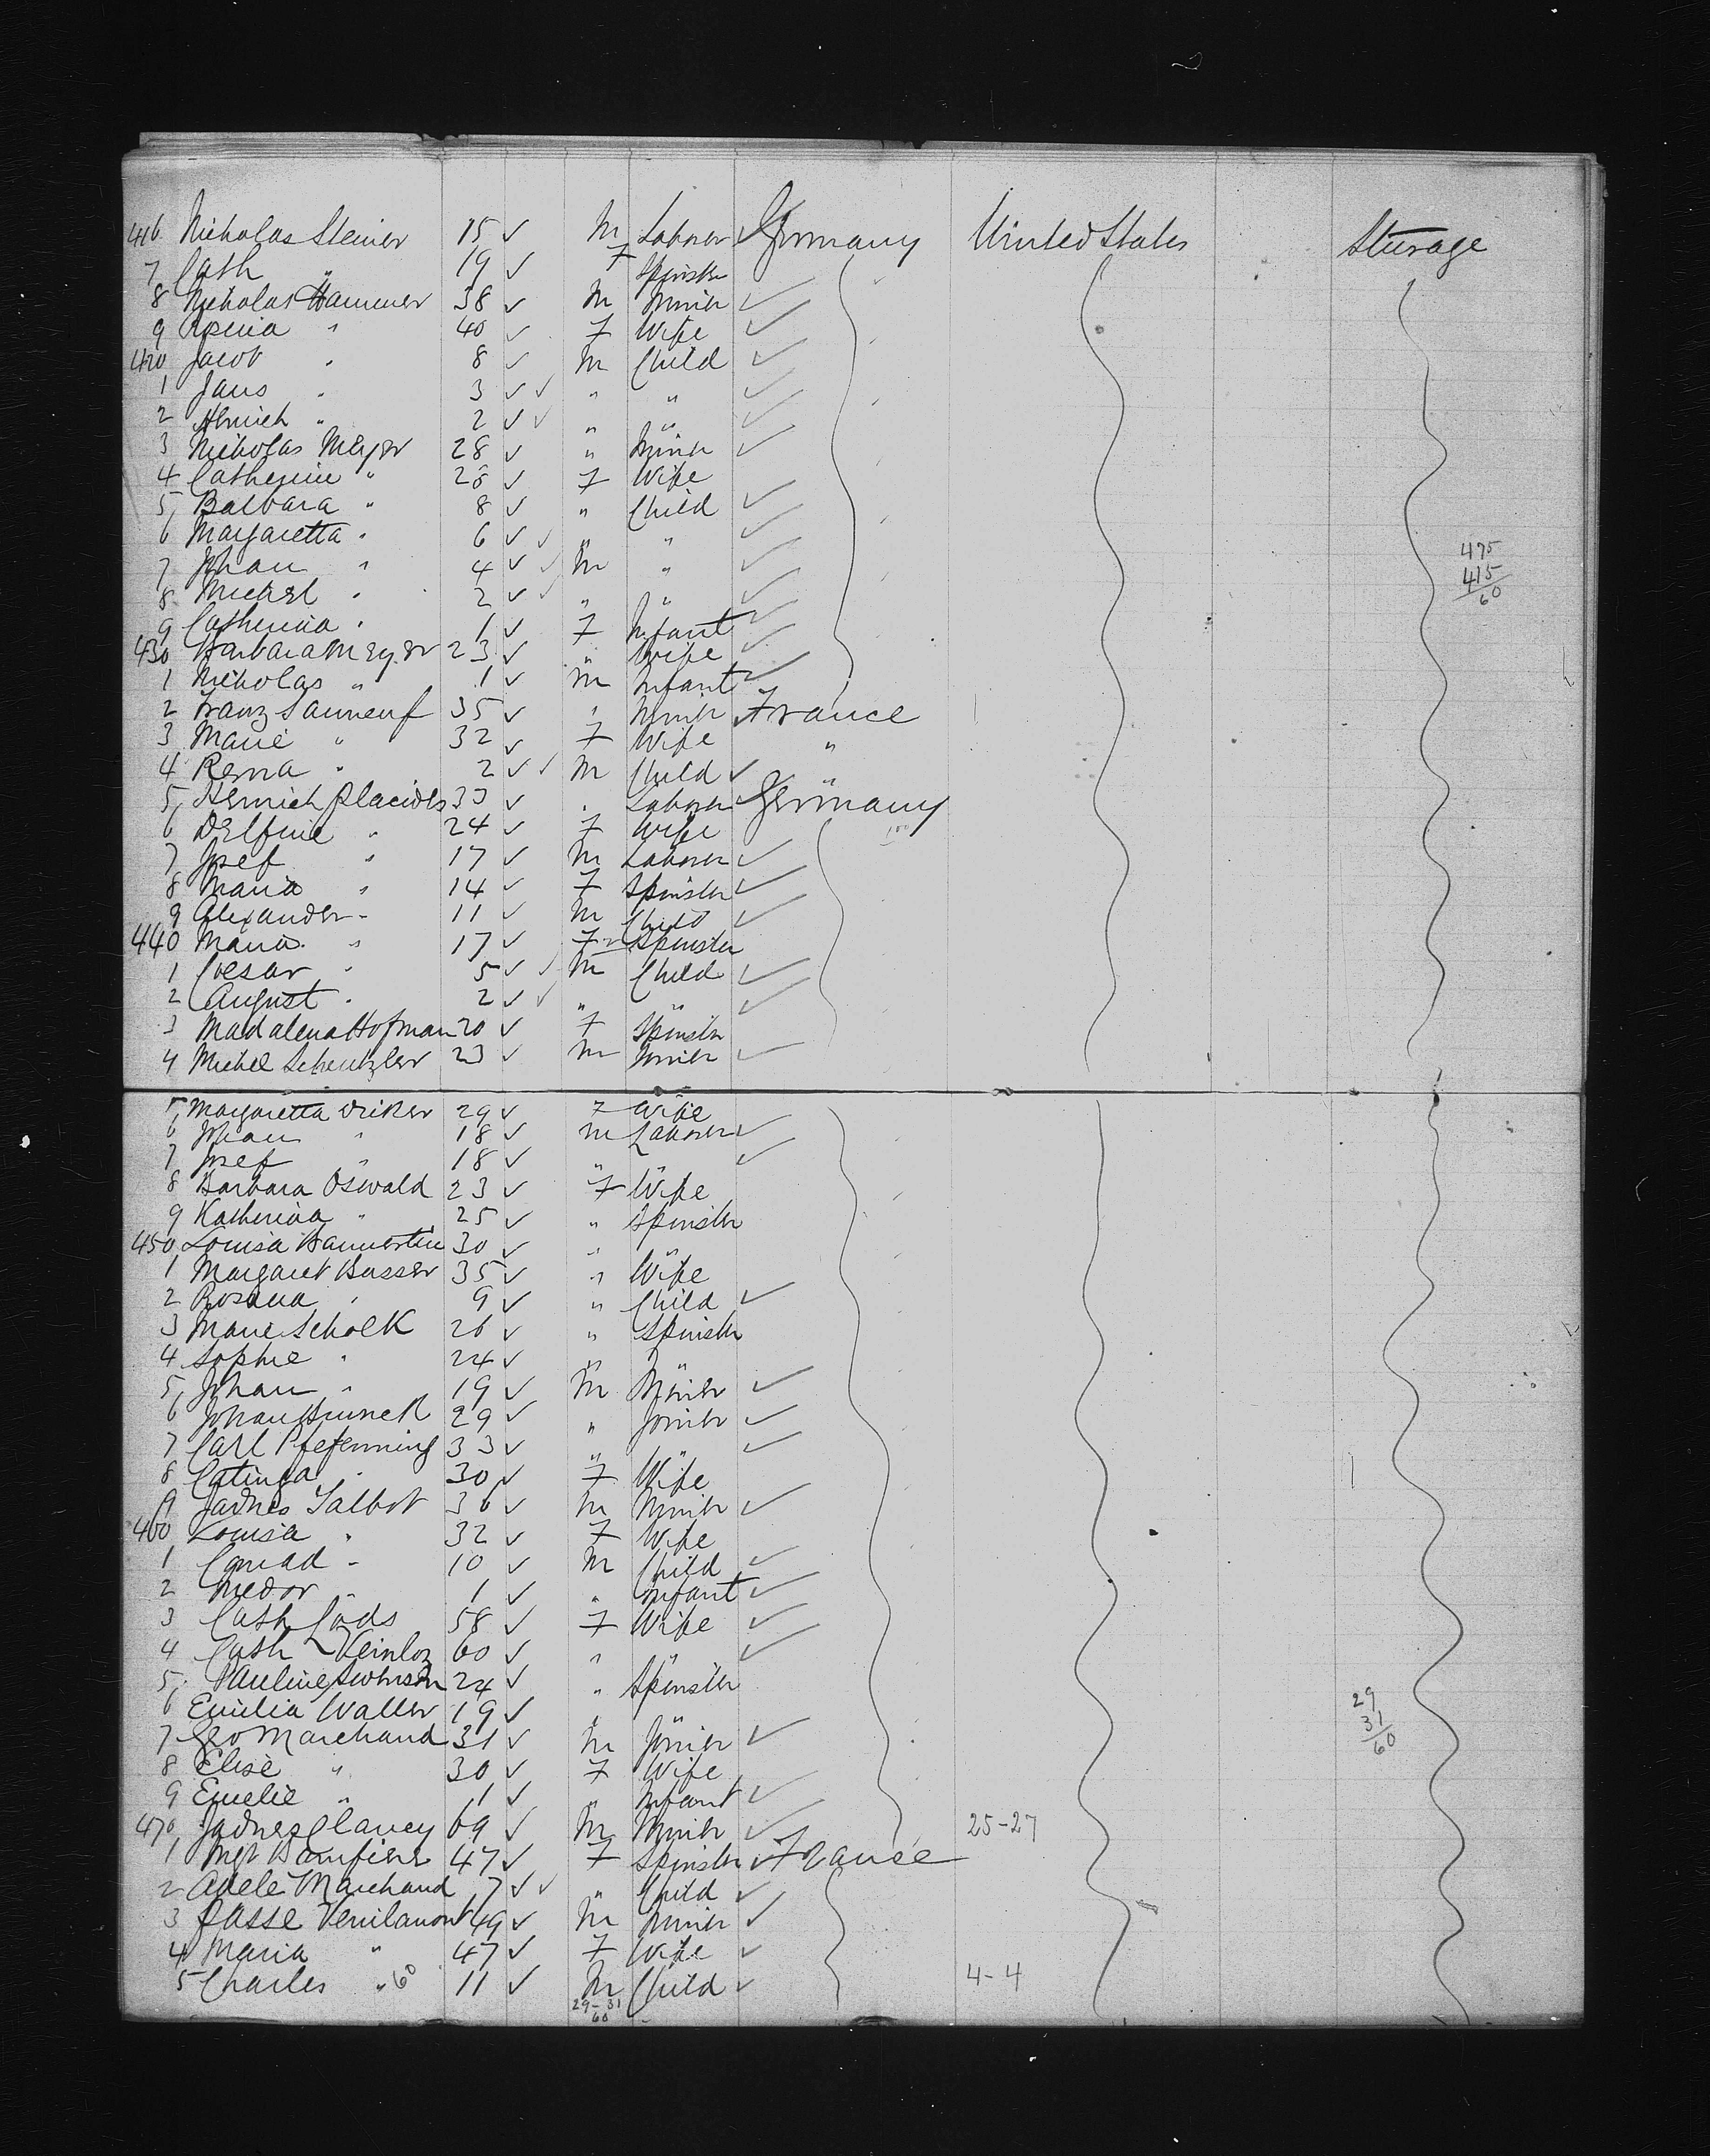 416 Nicholas Steiner 15 ✓ M Laborer ✓ Germany United States Steerage
7 Cath " 19 ✓ F Spinster
8 Nicholas Hammer 38 ✓ M Miner ✓
9 " 40 ✓ F Wife ✓
420 Jacob " 8 ✓ M Child ✓
1 Jans " 3 ✓ ✓ " " ✓
2 Henrich " 2 ✓ ✓ " " ✓
3 Nicholas Meyer 28 ✓ " Miner ✓
4 Catherine " 28 ✓ F Wife
5 Barbara " 8 ✓ " Child ✓
6 Margaretta " 6 ✓ ✓ " " ✓
475
7 Johan " 4 ✓ ✓ M " ✓
415
8 Michel " 2 ✓ ✓ " " ✓
60
9 Catherina " 1 ✓ F Infant ✓
430 Barbara Meyer 23 ✓ " Wife ✓
1 Nicholas " 1 ✓ M Infant ✓
2 Franz 35 ✓ " Miner ✓ France
3 Marie " 32 ✓ F Wife "
4 " 2 ✓ ✓ M Child ✓ "
5 Henrich Placides 33 ✓ " Laborer ✓ Germany
6 Delfine " 24 ✓ F Wife
7 Josef " 17 ✓ M Laborer ✓
8 Maria " 14 ✓ F Spinster ✓
9 Alexander " 11 ✓ M Child ✓
440 Maria " 17 ✓ F Spinster
1 Cesar " 5 ✓ ✓ M Child ✓
2 August " 2 ✓ ✓ " " ✓
3 Madalena Hofman 20 ✓ F Spinster
4 Michel Scheutzler 23 ✓ M Joiner ✓
5 Margaretta Driker 29 ✓ F Wife
6 Johan " 18 ✓ M Laborer ✓
7 Josef " 18 ✓ " " ✓
8 Barbara Oswald 23 ✓ F Wife
9 Katherina " 25 ✓ " Spinster
450 Louisa 30 ✓ " "
1 Margaret Busser 35 ✓ " Wife
2 Rosana " 9 ✓ " Child ✓
3 Marie Scholk 26 ✓ " Spinster
4 Sophie " 24 ✓ " "
5 Johan " 19 ✓ M Miner ✓
6 Johan 29 ✓ " Joiner ✓
7 Carl Pfefenning 33 ✓ " " ✓
8 Catinga " 30 ✓ F Wife
9 Talbot 36 ✓ M Miner ✓
460 Louisa " 32 ✓ F Wife
1 Conrad " 10 ✓ M Child ✓
2 Medor " 1 ✓ " Infant ✓
3 Cath Lods 58 ✓ F Wife ✓
4 Cath 60 ✓ " " ✓
5 Pauline 24 ✓ " Spinster
6 Emilia Waller 19 ✓ " "
29
31
60
7 Geo Marchand 31 ✓ M Joiner ✓
8 Elise " 30 ✓ F Wife
9 Emelie " 1 ✓ " Infant ✓
470 Clancy 69 ✓ M Miner ✓ 25-27
1 Mgt 47 ✓ F Spinster ✓ France
2 Adele Marchand 7 ✓ ✓ " Child ✓
3 49 ✓ M Miner ✓
4 Maria " 47 ✓ F Wife ✓
5 Charles " 60 11 ✓ M Child ✓ 4-4
29-31
60